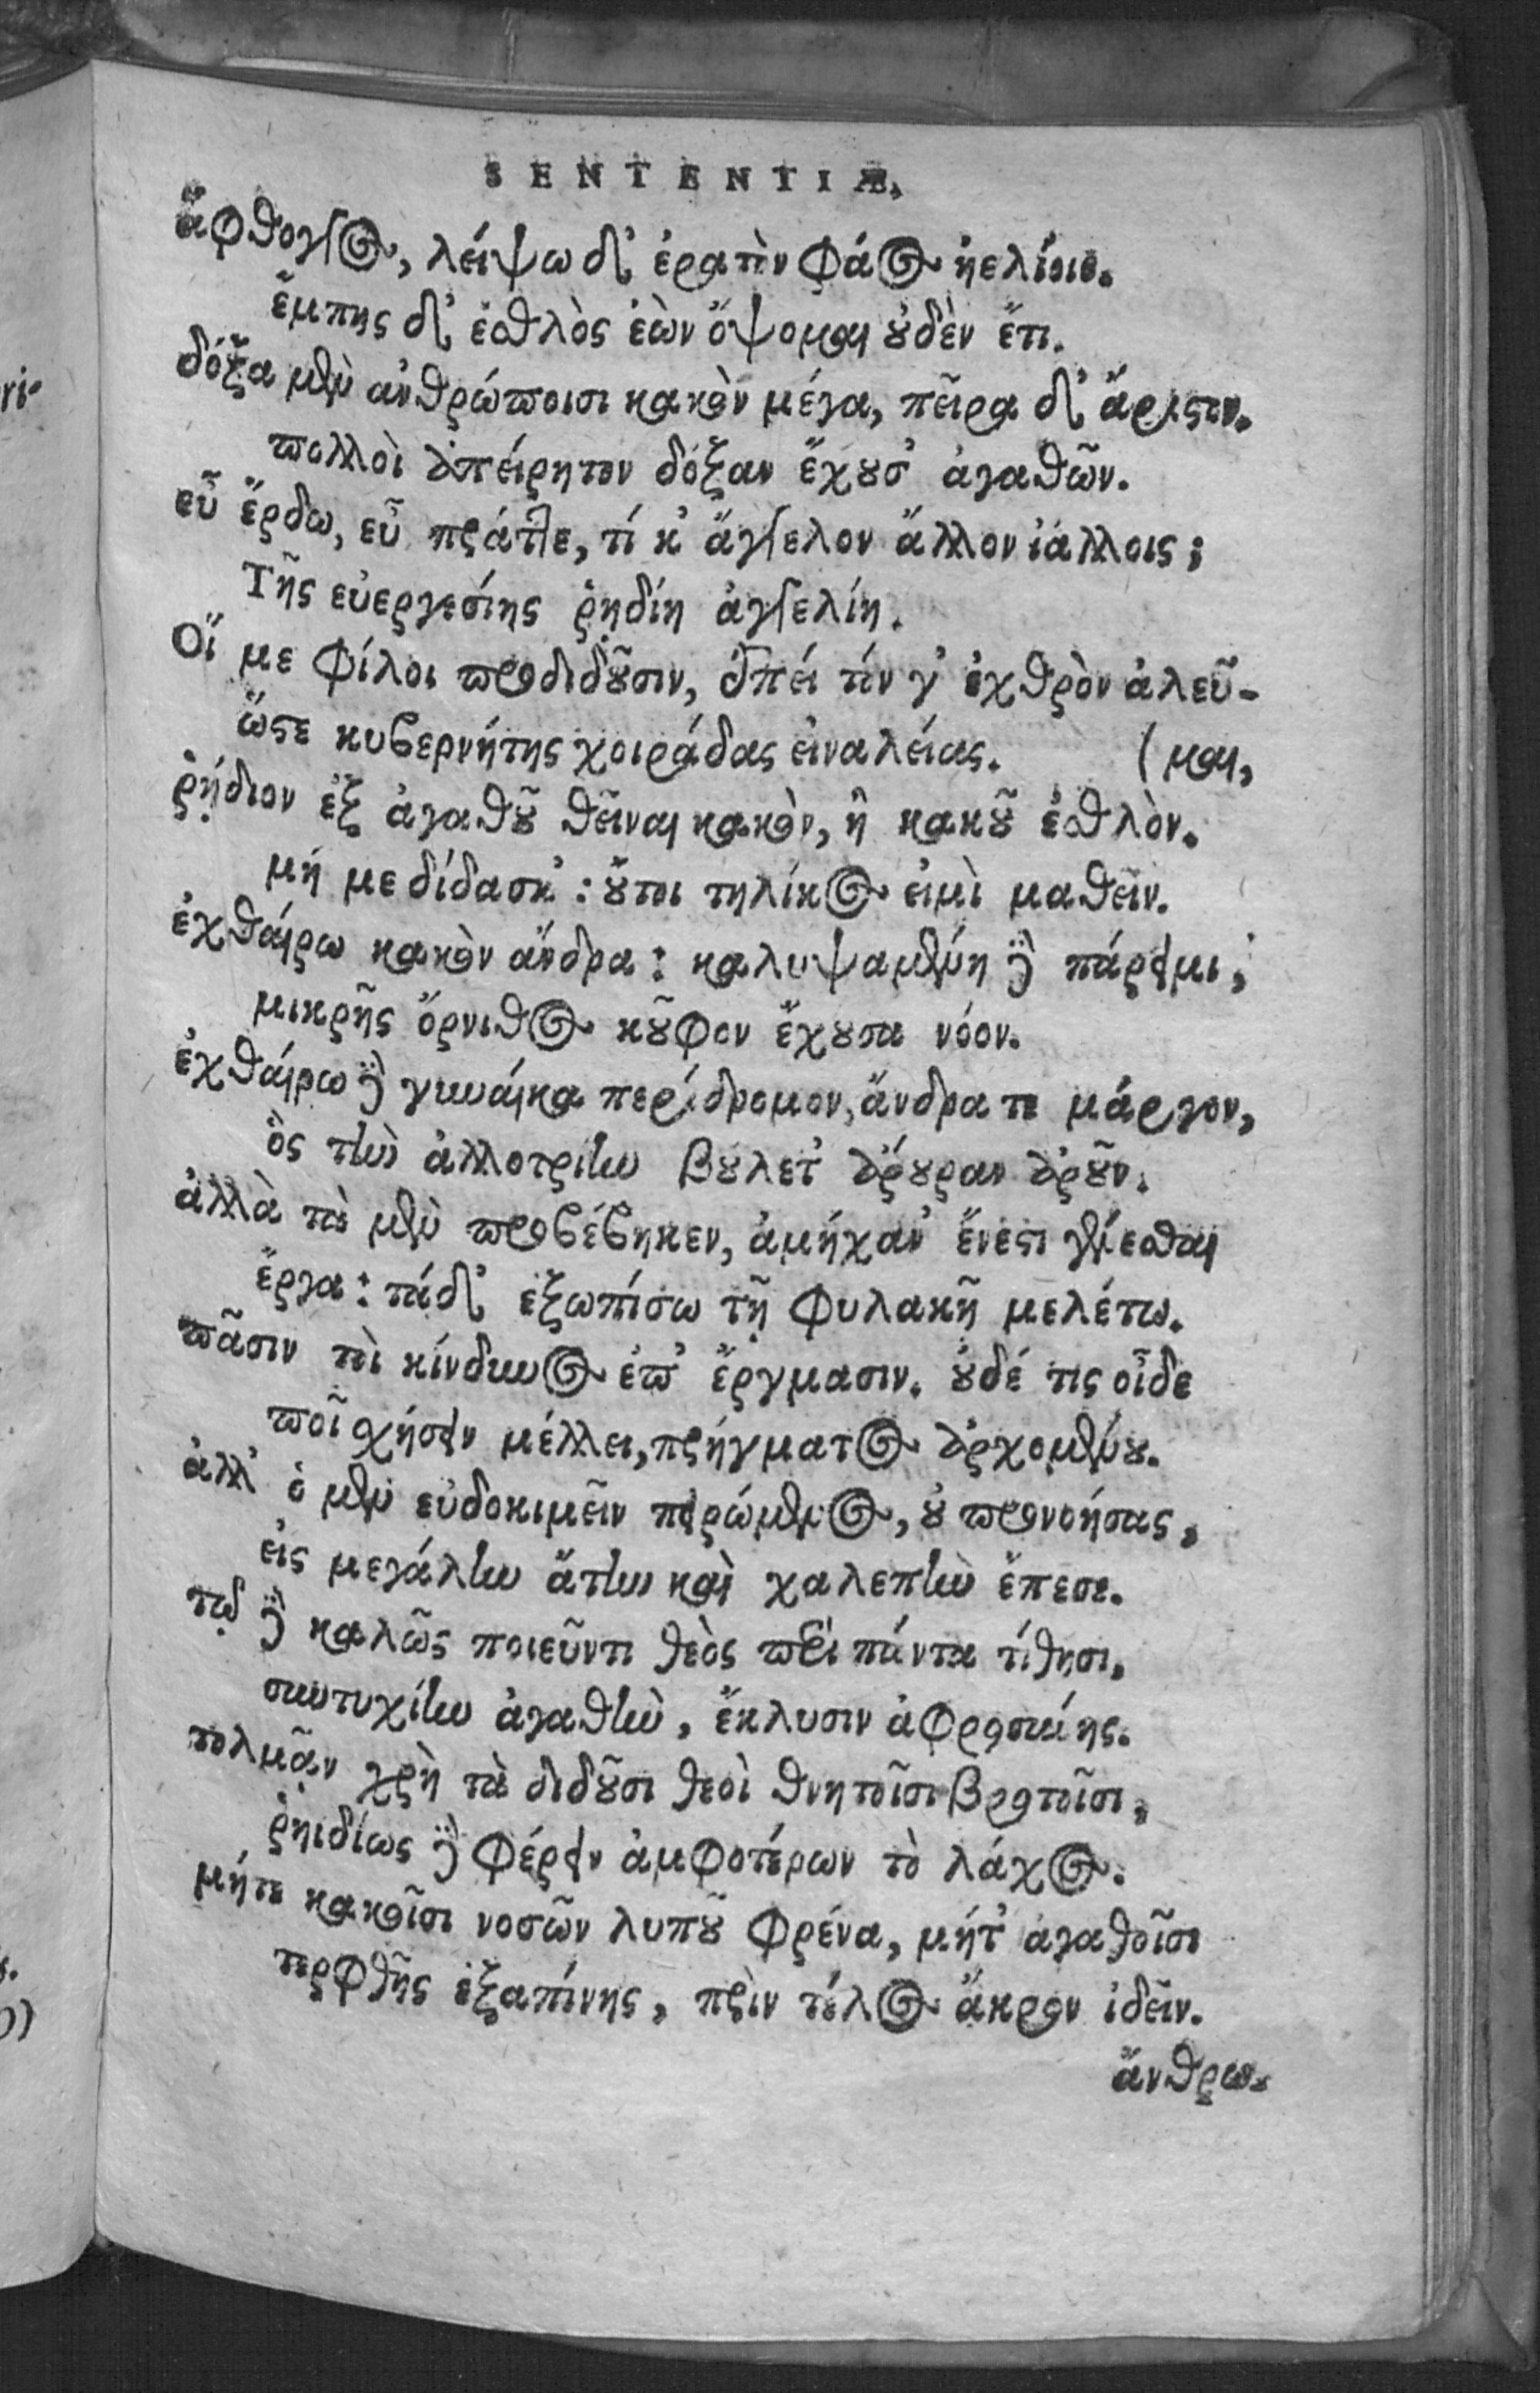 SENTENTIÆ,
ἄφθογγος, λείψω δ' ἐρατὸν φάος ἠελίοιο.
ἔμπης δ' ἐσθλὸς ἐὼν ὄψομαι οὐδὲν ἔτι.
δόξα μὲν ἀνθρώποισι κακὸν μέγα, πεῖρα δ' ἄριστον.
πολλοὶ ἀπείρητον δόξαν ἔχουσ' ἀγαθῶν.
εὖ ἔρδω, εὖ πράττε, τί κ' ἄγγελον ἄλλον ἰάλλοις;
Τῆς εὐεργεσίης ῥηδίη ἀγγελίη.
Οἵ με φίλοι προδιδοῦσιν, ἐπεὶ τόν γ' ἐχθρὸν ἀλεῦ-
ὥστε κυβερνήτης χοιράδας εἰναλείας. (μαι,
ῥήδιον ἐξ ἀγαθοῦ θεῖναι κακὸν, ἢ κακοῦ ἐσθλὸν.
μή με δίδασκ': οὔτοι τηλίκος εἰμὶ μαθεῖν.
ἐχθαίρω κακὸν ἄνδρα: καλυψαμένη δὲ πάρειμι,
μικρῆς ὄρνιθος κοῦφον ἔχουσα νόον.
ἐχθαίρω δὲ γυναῖκα περίδρομον, ἄνδρα τε μάργον,
ὃς τὴν ἀλλοτρίην βούλετ' ἄρουραν ἀροῦν.
ἀλλὰ τὰ μὲν προβέβηκεν, ἀμήχαν' ἔνεστι γενέσθαι
ἔργα: τά δ' ἐξωπίσω τῇ φυλακῇ μελέτω.
πᾶσιν τοὶ κίνδυνος ἐπ' ἔργμασιν. οὐδέ τις οἶδε
ποῖ σχήσειν μέλλει, πρήγματος ἀρχομένου.
ἀλλ' ὁ μὲν εὐδοκιμεῖν πειρώμενος, οὐ προνοήσας,
εἰς μεγάλην ἄτην καὶ χαλεπὴν ἔπεσε.
τῷ δὲ καλῶς ποιεῦντι θεὸς περὶ πάντα τίθησι,
συντυχίην ἀγαθὴν, ἔκλυσιν ἀφροσύνης.
τολμᾷν χρὴ τὰ διδοῦσι θεοὶ θνητοῖσι βροτοῖσι,
ῥηιδίως δὲ φέρειν ἀμφοτέρων τὸ λάχος.
μήτε κακοῖσι νοσῶν λυποῦ φρένα, μήτ' ἀγαθοῖσι
τερφθῇς ἐξαπίνης, πρὶν τέλος ἄκρον ἰδεῖν.
ἄνθρω-